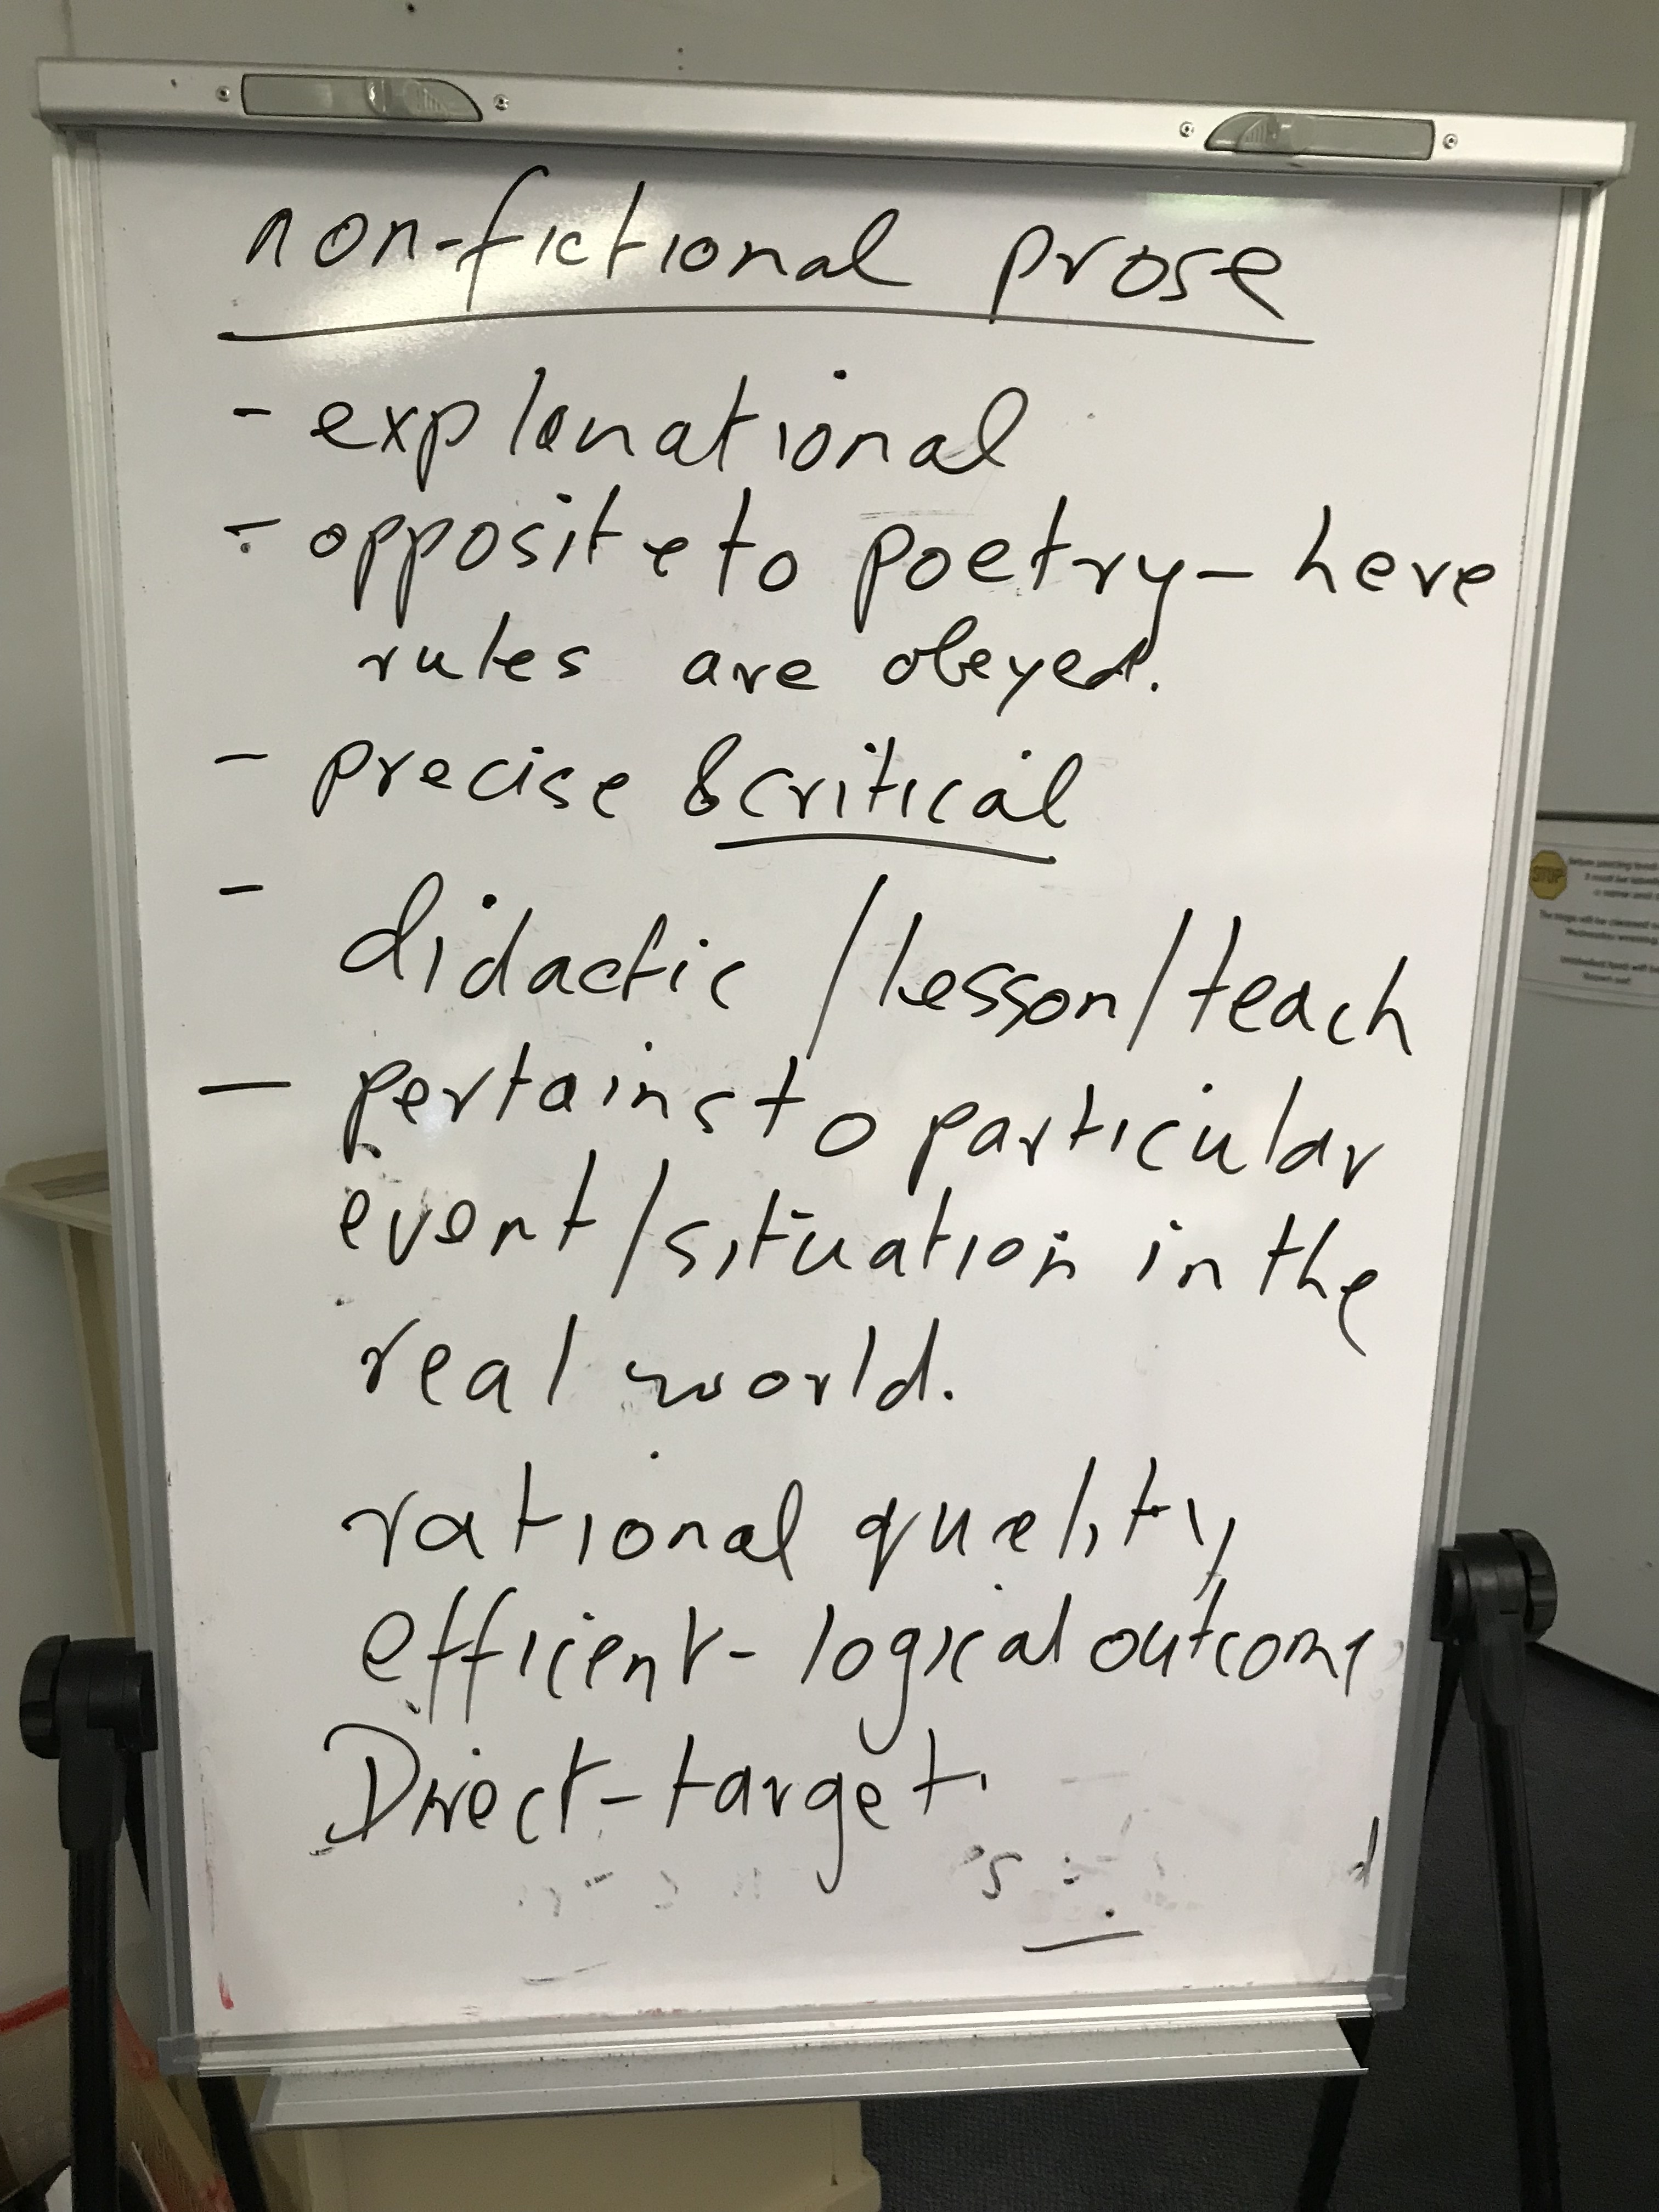 non-fictional prose
- explanational
- opposite to poetry - here
rules are obeyed.
- precise & critical
-
didactic / lesson / teach
- pertains to particular
event / situation in the
real world.
rational quality
efficient - logical outcome
Direct - target.
STOP